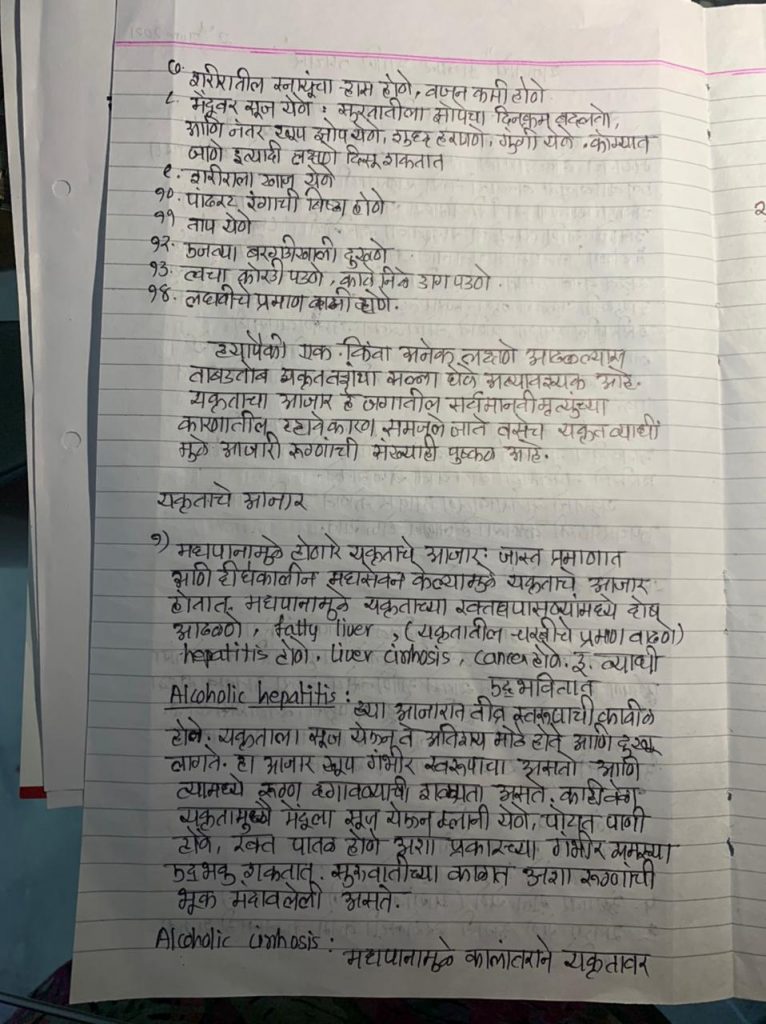 ७. शरीरातील स्नायूंचा ऱ्हास होणे, वजन कमी होणे
८. मेंदूवर सूज येणे : सुरुवातीला झोपेचा दिनक्रम बदलतो,
आणि नंतर खूप झोप येणे, शुद्ध हरपणे, गुंगी येणे. कोम्यात
जाणे इत्यादी लक्षणे दिसू शकतात
९. शरीराला खाज येणे
१०. पांढरट रंगाची विष्ठा होणे
११ ताप येणे
१२. उजव्या बरगडीखाली दुखणे
१३. त्वचा कोरडी पडणे, काळे निळे डाग पडणे.
१४. लघवीचे प्रमाण कमी होणे.
ह्यापैकी एक किंवा अनेक लक्षणे आढळल्यास
ताबडतोब यकृततज्ञांचा सल्ला घेणे अत्यावश्यक आहे.
यकृताचा आजार हे जगातील सर्व मानवी मृत्युंच्या
कारणातील दहावे कारण समजले जाते तसेच यकृत व्याधीं
मुळे आजारी रुग्णांची संख्याही पुष्कळ आहे.
यकृताचे आजार
१) मद्यपानामुळे होणारे यकृताचे आजार: जास्त प्रमाणात
आणि दीर्घकालीन मद्यसेवन केल्यामुळे यकृताचे आजार
होतात. मद्यपानामुळे यकृताच्या रक्ततपासण्यांमध्ये दोष
आढळणे, fatty liver, (यकृतातील चरबीचे प्रमाण वाढणे)
hepatitis होणे. Liver cirrhosis, cancer होणे. इ. व्याधी
उद्भवतात
Alcoholic hepatitis : ह्या आजारात तीव्र स्वरूपाची कावीळ
होते. यकृताला सूज येऊन ते अतिशय मोठे होते आणि दुखू
लागते. हा आजार खूप गंभीर स्वरूपाचा असतो आणि
त्यामध्ये रुग्ण दगावण्याची शक्यता असते. काहीवेळा
यकृतामुळे मेंदूला सूज येऊन ग्लानी येणे, पोटात पाणी
होणे, रक्त पातळ होणे अशा प्रकारच्या गंभीर समस्या
उद्भवू शकतात. सुरुवातीच्या काळात अशा रुग्णांची
भूक मंदावलेली असते.
Alcoholic cirrhosis : मद्यपानामुळे कालांतराने यकृतावर